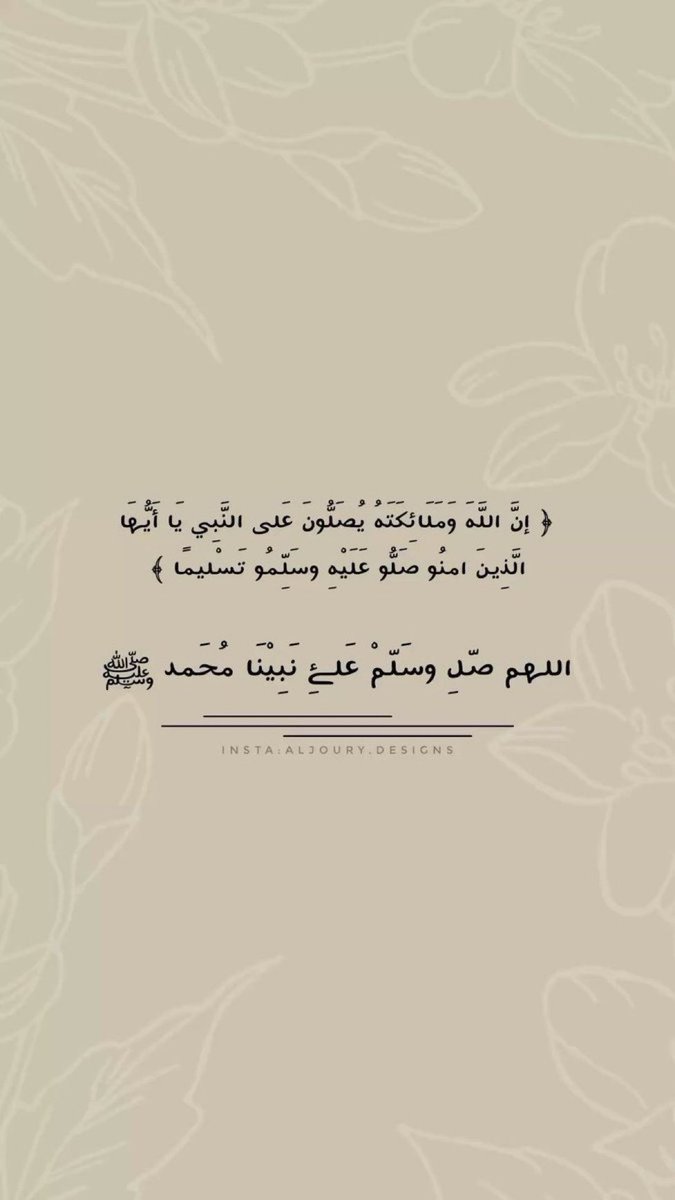 ﴿ إنَّ اللَّهَ وَمَلَائِكَتَهُ يُصَلُّونَ عَلى النَّبِي يَا أَيُّهَا
الَّذِينَ امنُو صَلُّو عَلَيْهِ وسَلِّمُو تَسْليمًا ﴾
اللهم صّلِ وسَلّمْ عَلےِ نَبِيْنَا مُحَمد ﷺ
INSTA:ALJOURY.DESIGNS